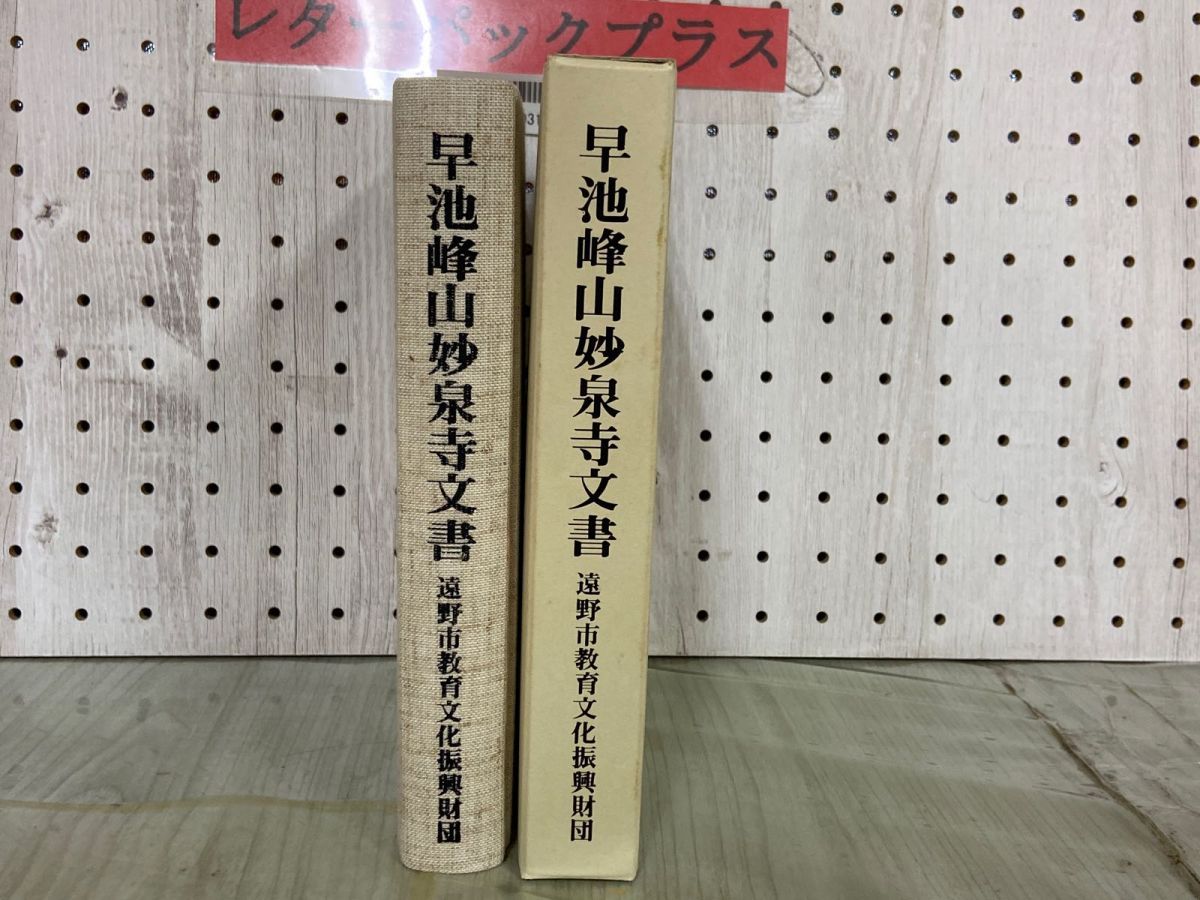 レターパックプラス
早池峰山妙泉寺文書
遠野市教育文化振興財団
早池峰山妙泉寺文書
遠野市教育文化振興財団